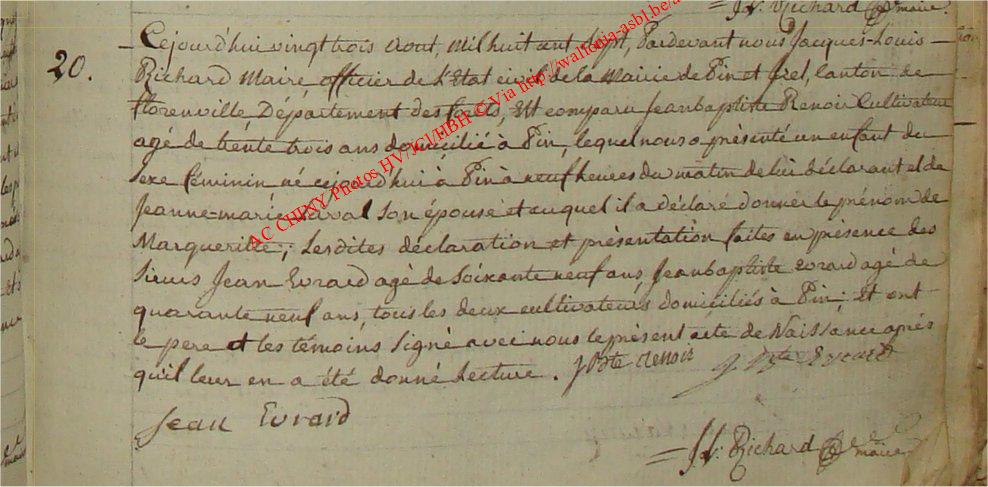 J. L. Richard maire.
20.
Cejourd'hui vingt trois aout, mil huit cent sept, Pardevant nous Jacques-Louis
Richard Maire, officier de l'Etat civil de la Mairie de Pin et Izel, Canton de
florenville Département des forêts, Est comparu Jeanbaptiste Renoir Cultivateur
agé de trente trois ans domicilié à Pin, lequel nous a présenté un enfant du
sexe féminin né cejourd'hui à Pin à neuf heures du matin de lui déclarant et de
Jeanne-marie son épouse et auquel il a déclaré donner le prénom de
Marguerite; Lesdites déclaration et présentation faites en présence des
sieurs Jean Evrard agé de soixante neuf ans Jeanbaptiste evrard agé de
quarante neuf ans, tous les deux cultivateurs domiciliés à Pin; Et ont
le pere et les témoins signé avec nous le présent acte de Naissance après
qu'il leur en a été donné Lecture. J Bte Renoir J Bte Evrard
Jean Evrard
J. L. Richard maire
AC CHINY Photos HV/JCI/HBH © Via http://wallonia-asbl.be/